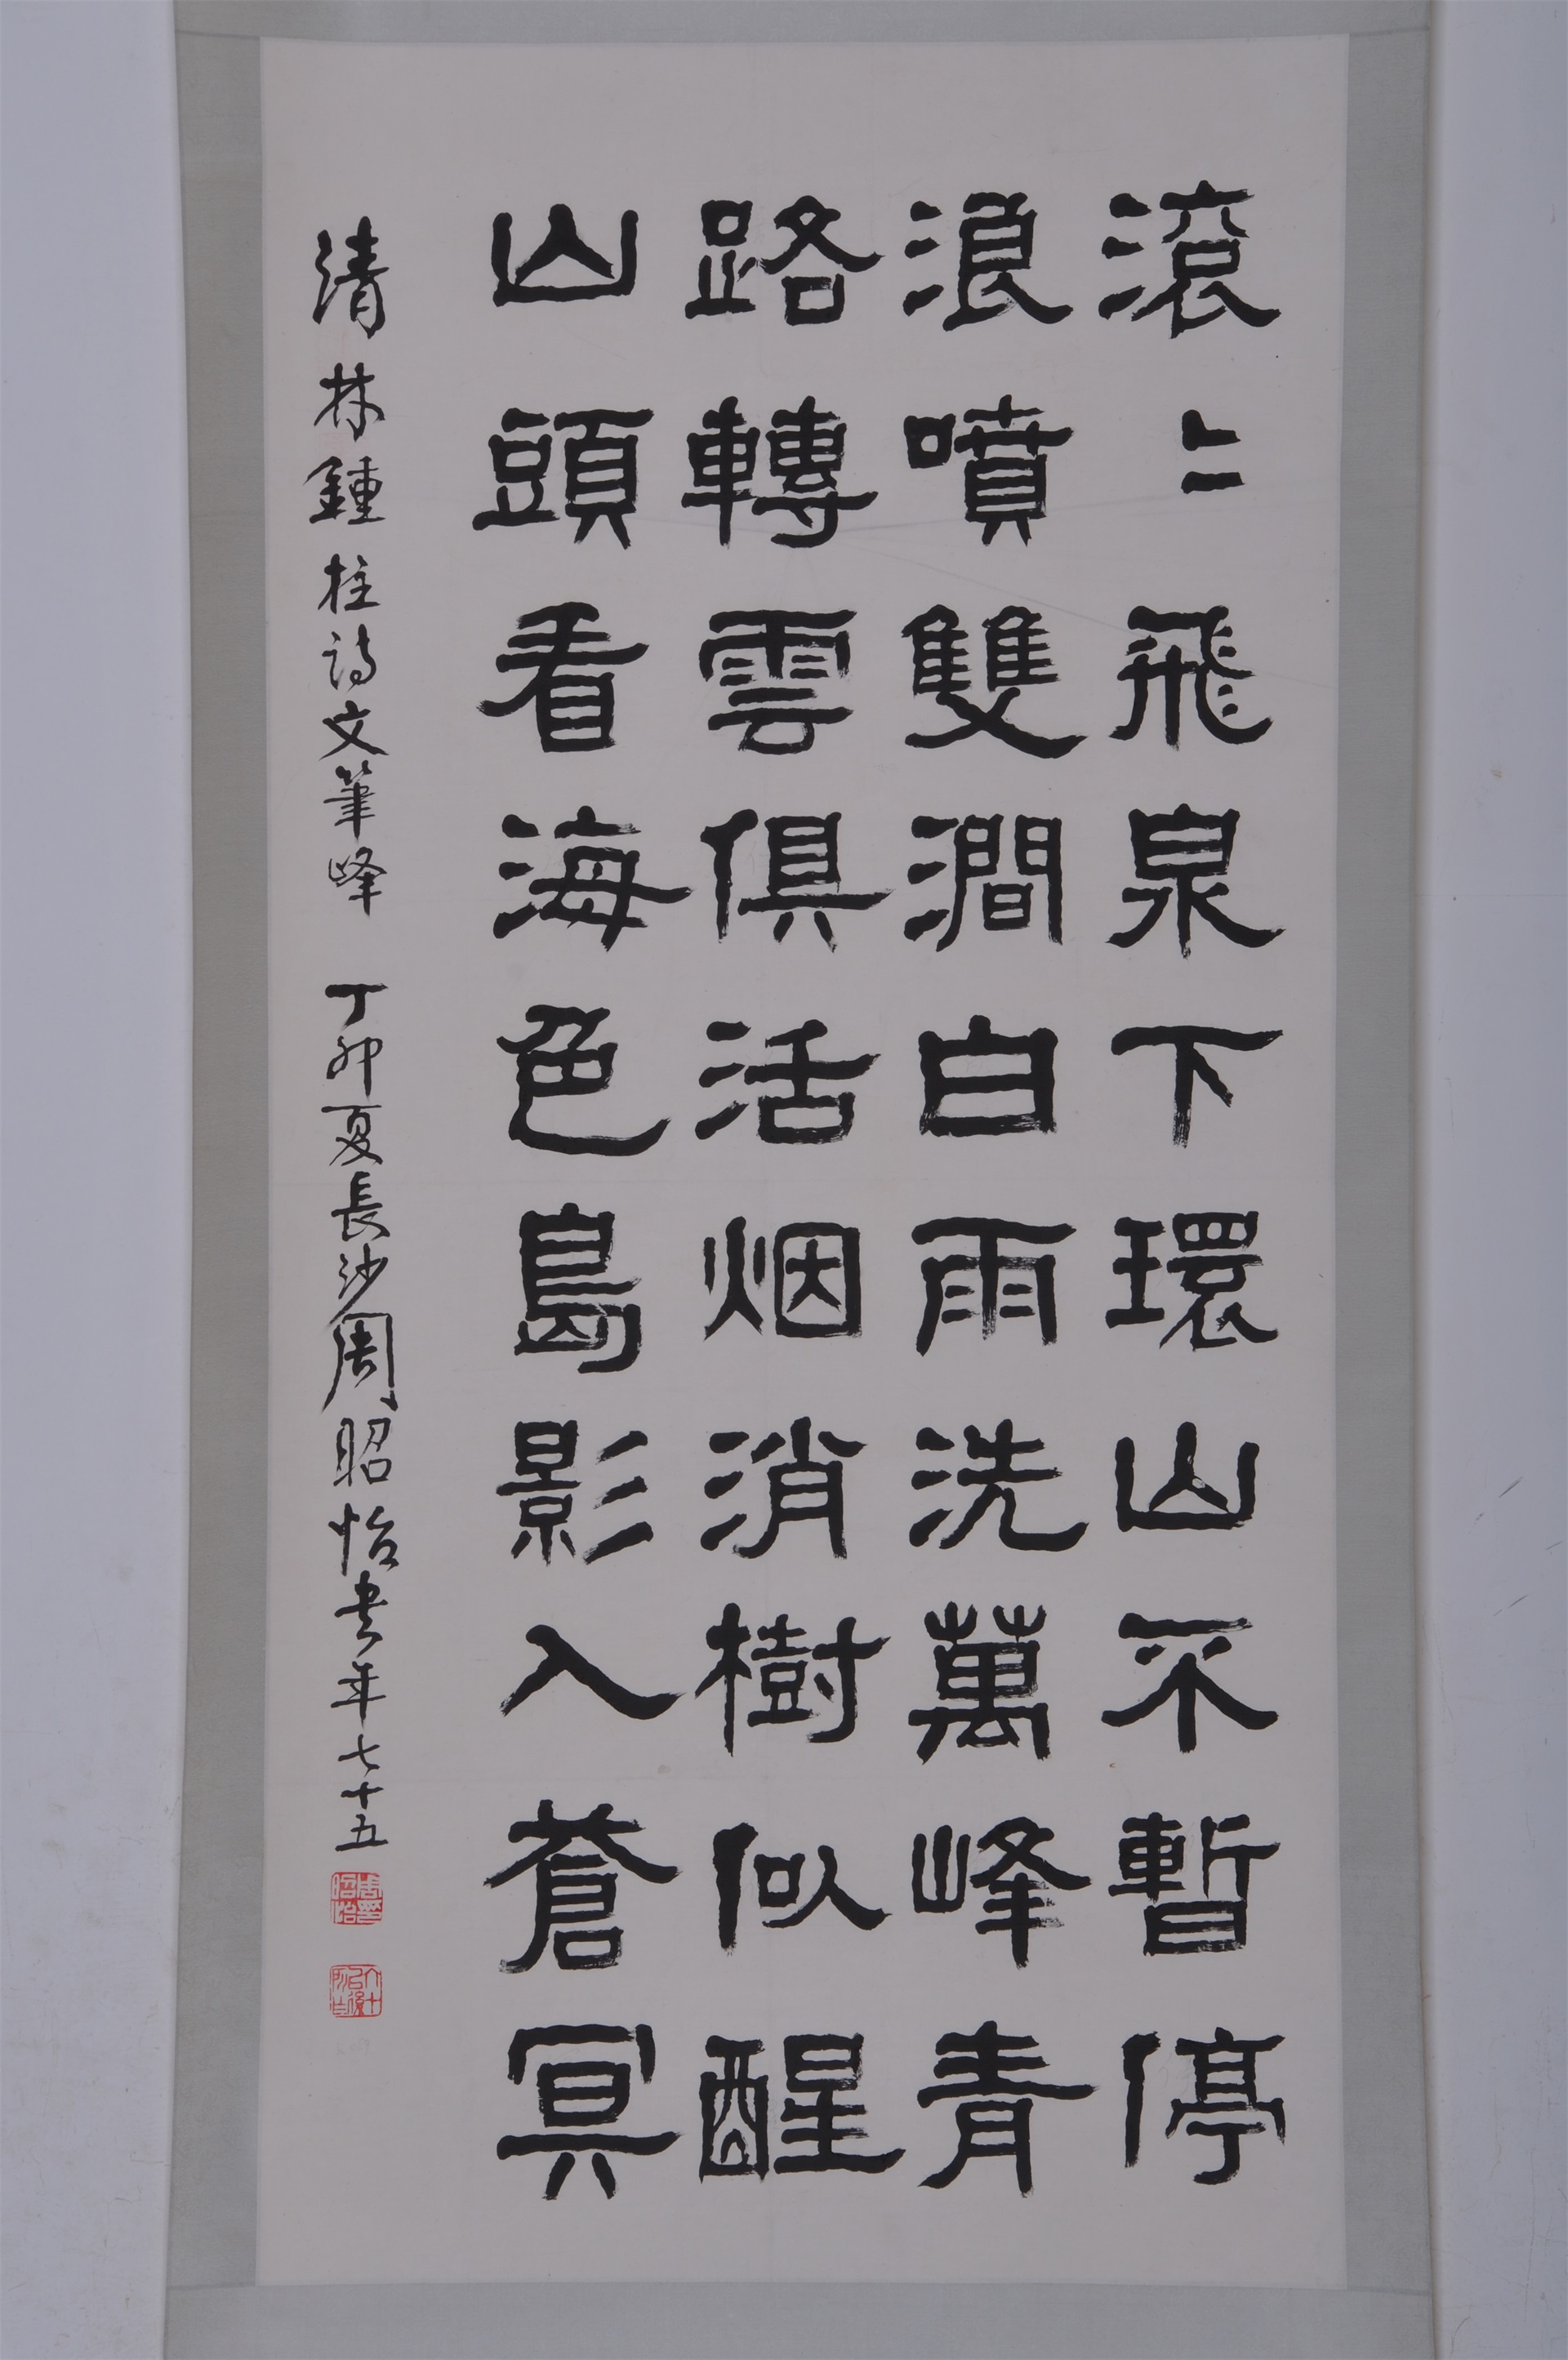 滚〻飛泉下環山不暫停
浪噴雙澗白雨洗萬峰青
路轉雲俱活烟消樹似醒
山頭看海色島影入蒼冥
清林鍾柱詩文筆峰 丁卯夏長沙周昭怡書年七十五
周昭怡